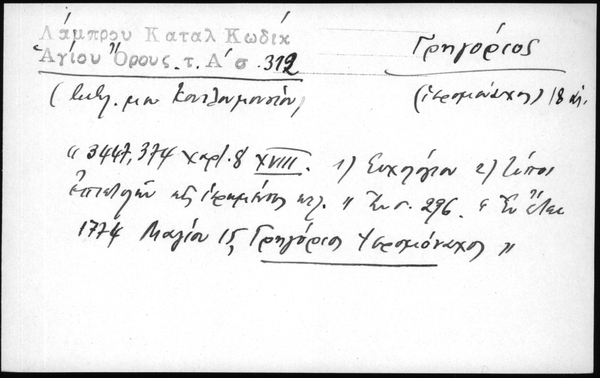 Λάμπρου Καταλ Κωδικ
Ἁγίου Ὄρους τ. Α΄ σ. 312
Γρηγόριος
(βιβλ. μον Κουτλουμουσίου)
(ἱερομόναχος) 18 αἰ.
« 3447, 374 χαρτ. 8 XVIII. 1) Εὐχολόγιον 2) Τύποι
ἐπιστολῶν κτλ. » Ἐν σ. 296. « Ἐν ἔτει
1774 Μαΐου 15, Γρηγόριος Ἱερομόναχος »